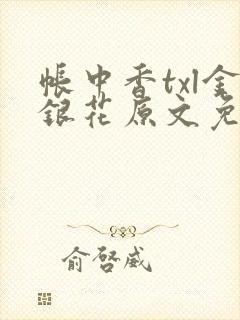 帳中香txl金
銀花原文免
俞啓威